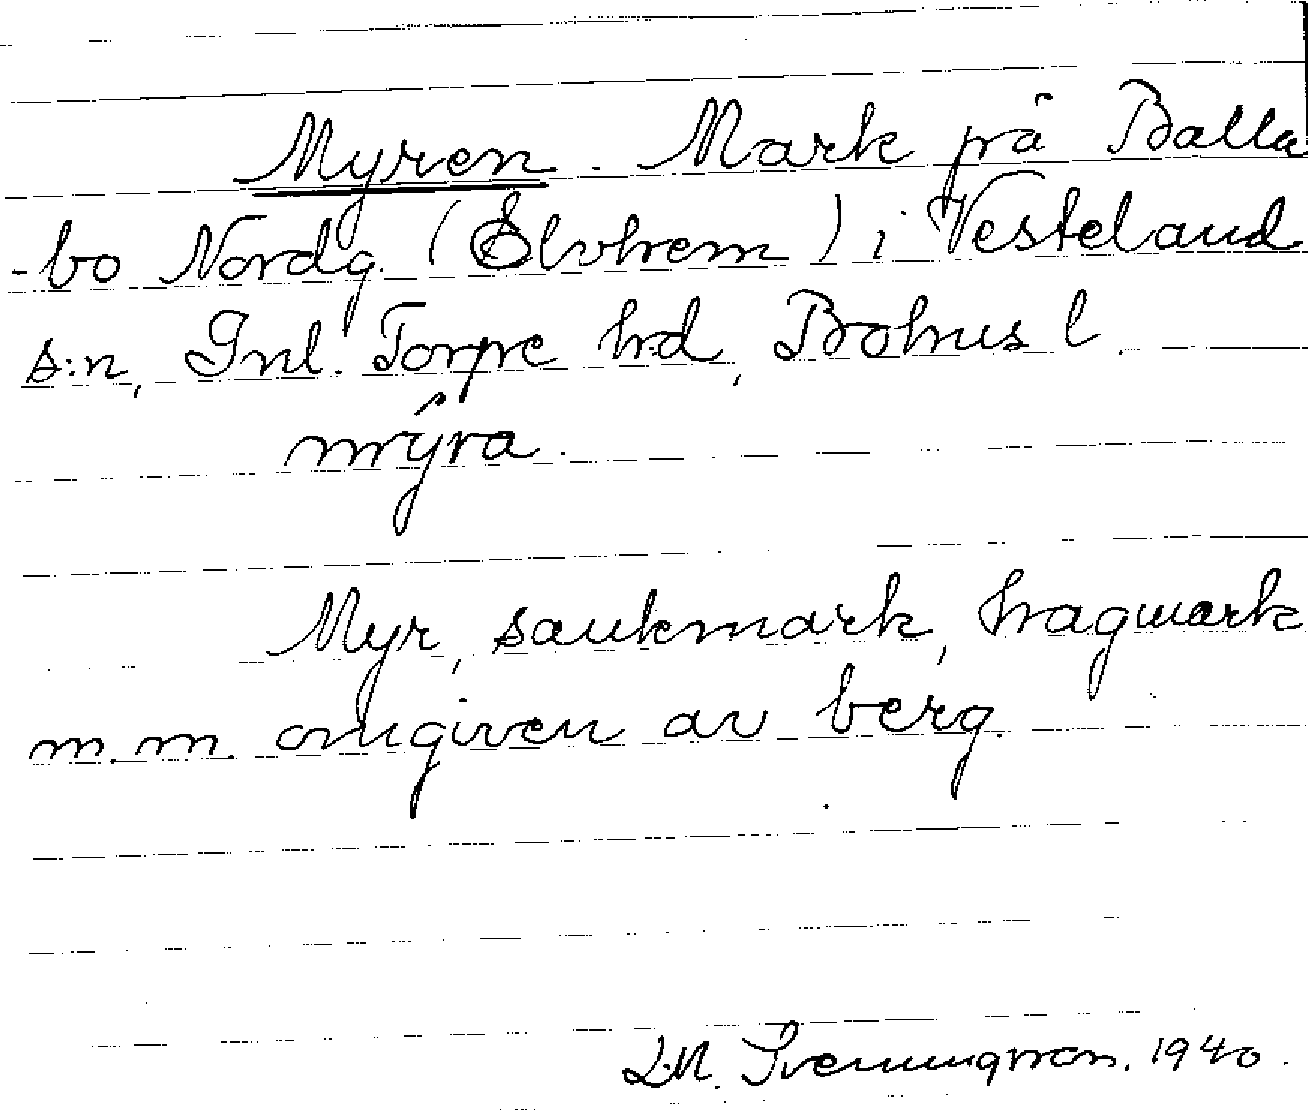 Myren. Mark på Balla
-bo Nordg. (Elvhem) i Vesteland
s:n, Inl. Torpe hd, Bohus l.
mýra.
Myr, sankmark, hagmark
m.m. omgiven av berg.
L.N. Svenungsson. 1940.